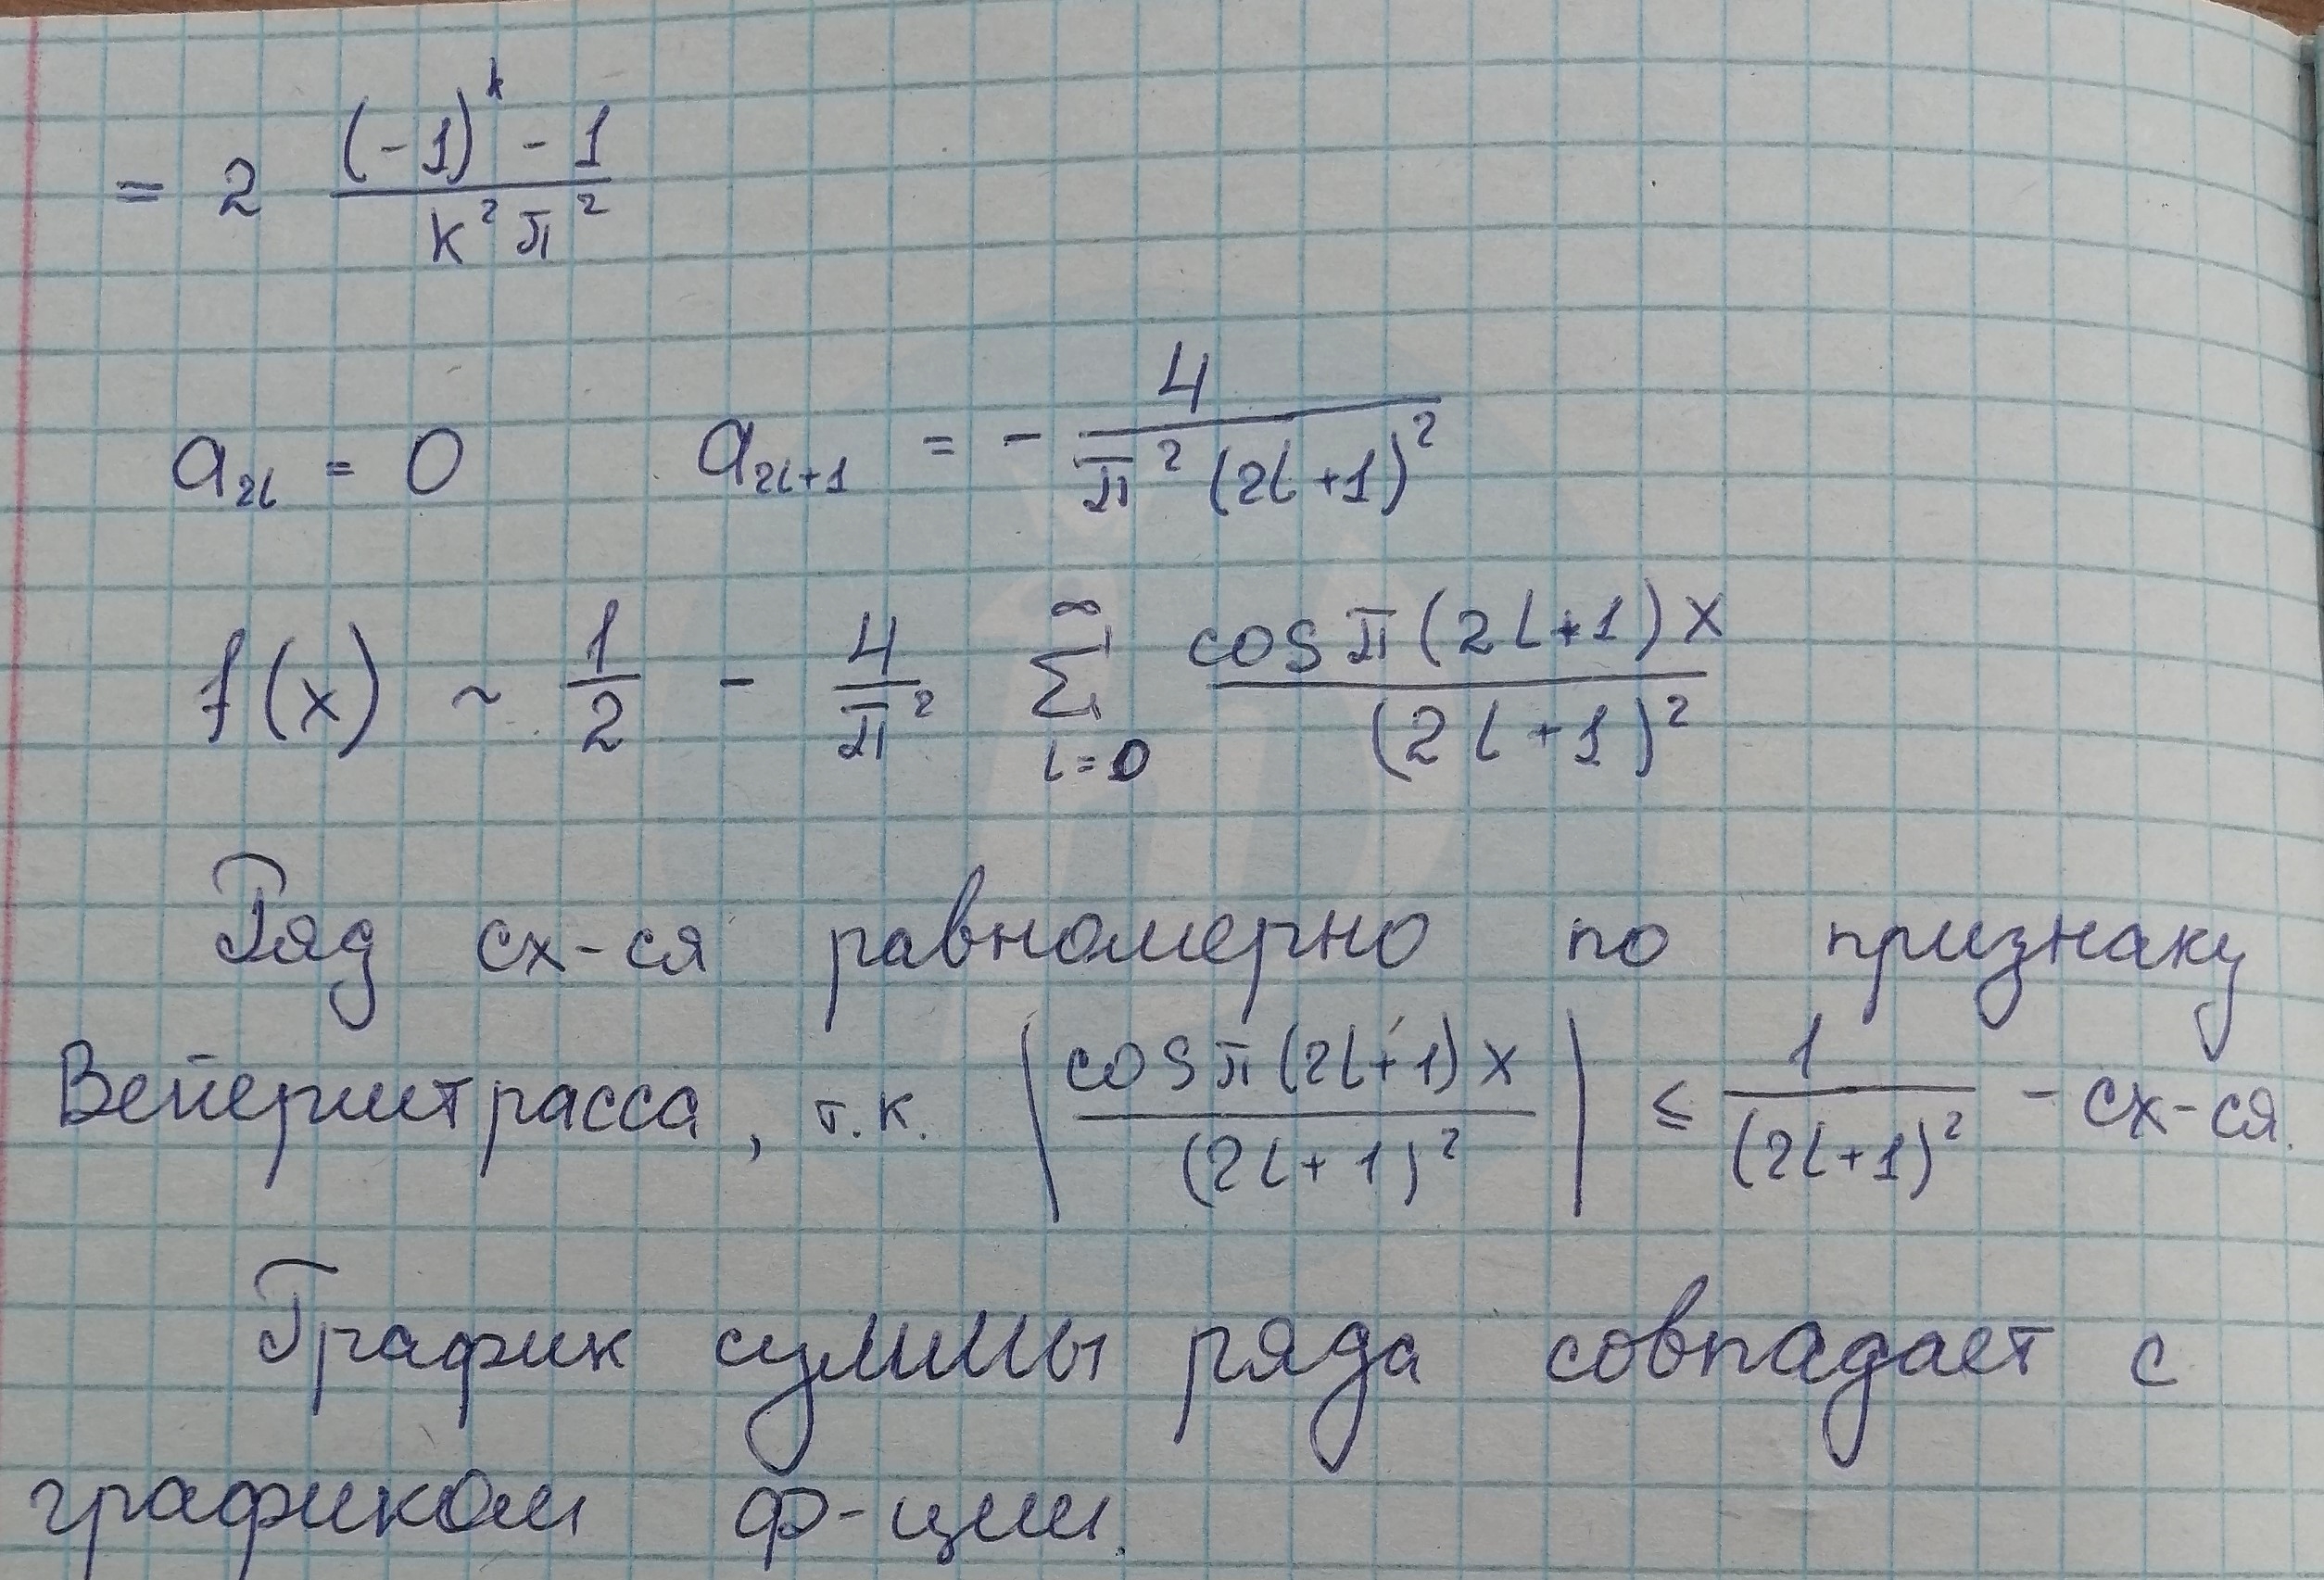 = 2 ((-1)^k - 1)/(k² π²)
a_{2l} = 0    a_{2l+1} = - 4/(π² (2l+1)²)
f(x) ~ 1/2 - 4/π² ∑_{l=0}^{∞} cos π(2l+1)x/(2l+1)²
Ряд сх-ся равномерно по признаку
Вейерштрасса, т.к. |cos π(2l+1)x/(2l+1)²| ≤ 1/(2l+1)² - сх-ся.
График суммы ряда совпадает с
графиком ф-ции.